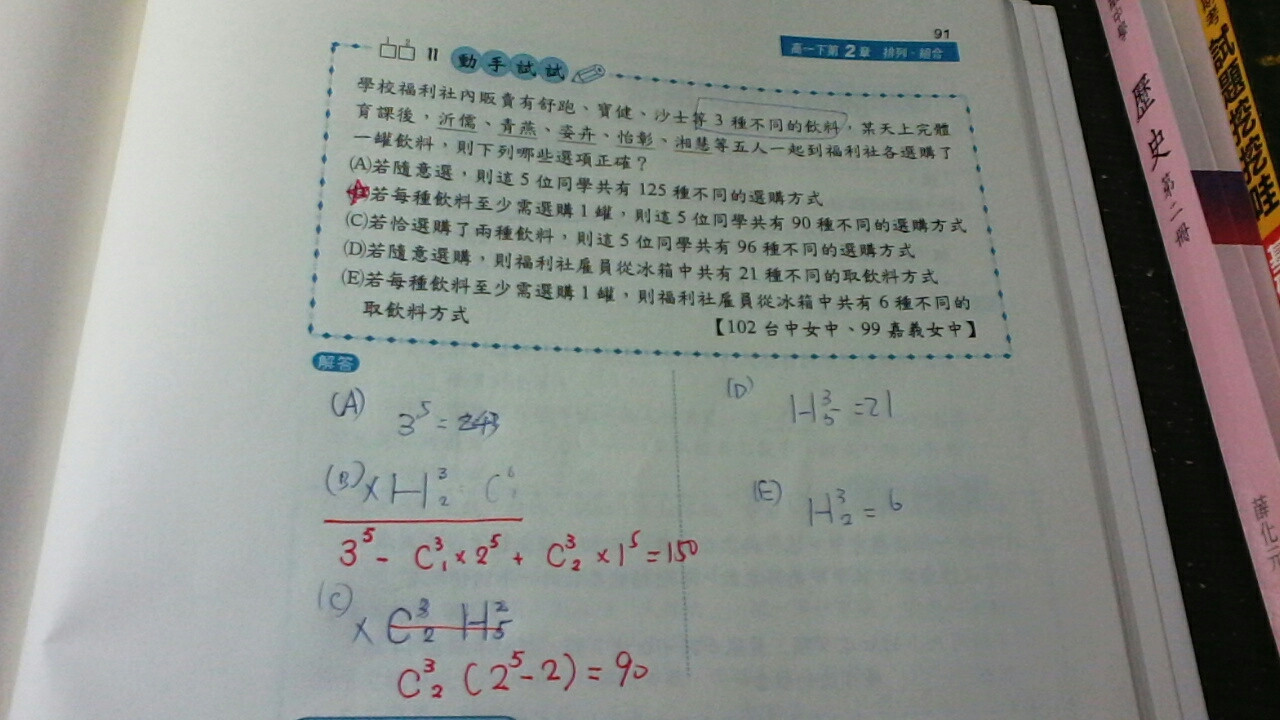 91
高一下第2章 排列、組合
11 動手試試
學校福利社內販賣有舒跑、寶健、沙士等3種不同的飲料，某天上完體
育課後，沂儒、青燕、姿卉、怡彰、湘慧等五人一起到福利社各選購了
一罐飲料，則下列哪些選項正確？
(A)若隨意選，則這5位同學共有125種不同的選購方式
若每種飲料至少需選購1罐，則這5位同學共有90種不同的選購方式
(C)若恰選購了兩種飲料，則這5位同學共有96種不同的選購方式
(D)若隨意選購，則福利社雇員從冰箱中共有21種不同的取飲料方式
(E)若每種飲料至少需選購1罐，則福利社雇員從冰箱中共有6種不同的
取飲料方式
【102台中女中、99嘉義女中】
解答
(A) 3⁵=243
(B) × H³₂ C
3⁵- C³₁×2⁵+ C³₂×1⁵=150
(C) × C³₂ H²₅
C³₂ (2⁵-2)=90
(D) H³₅=21
(E) H³₂=6
歷史 第二冊
薛化元
試題挖挖哇